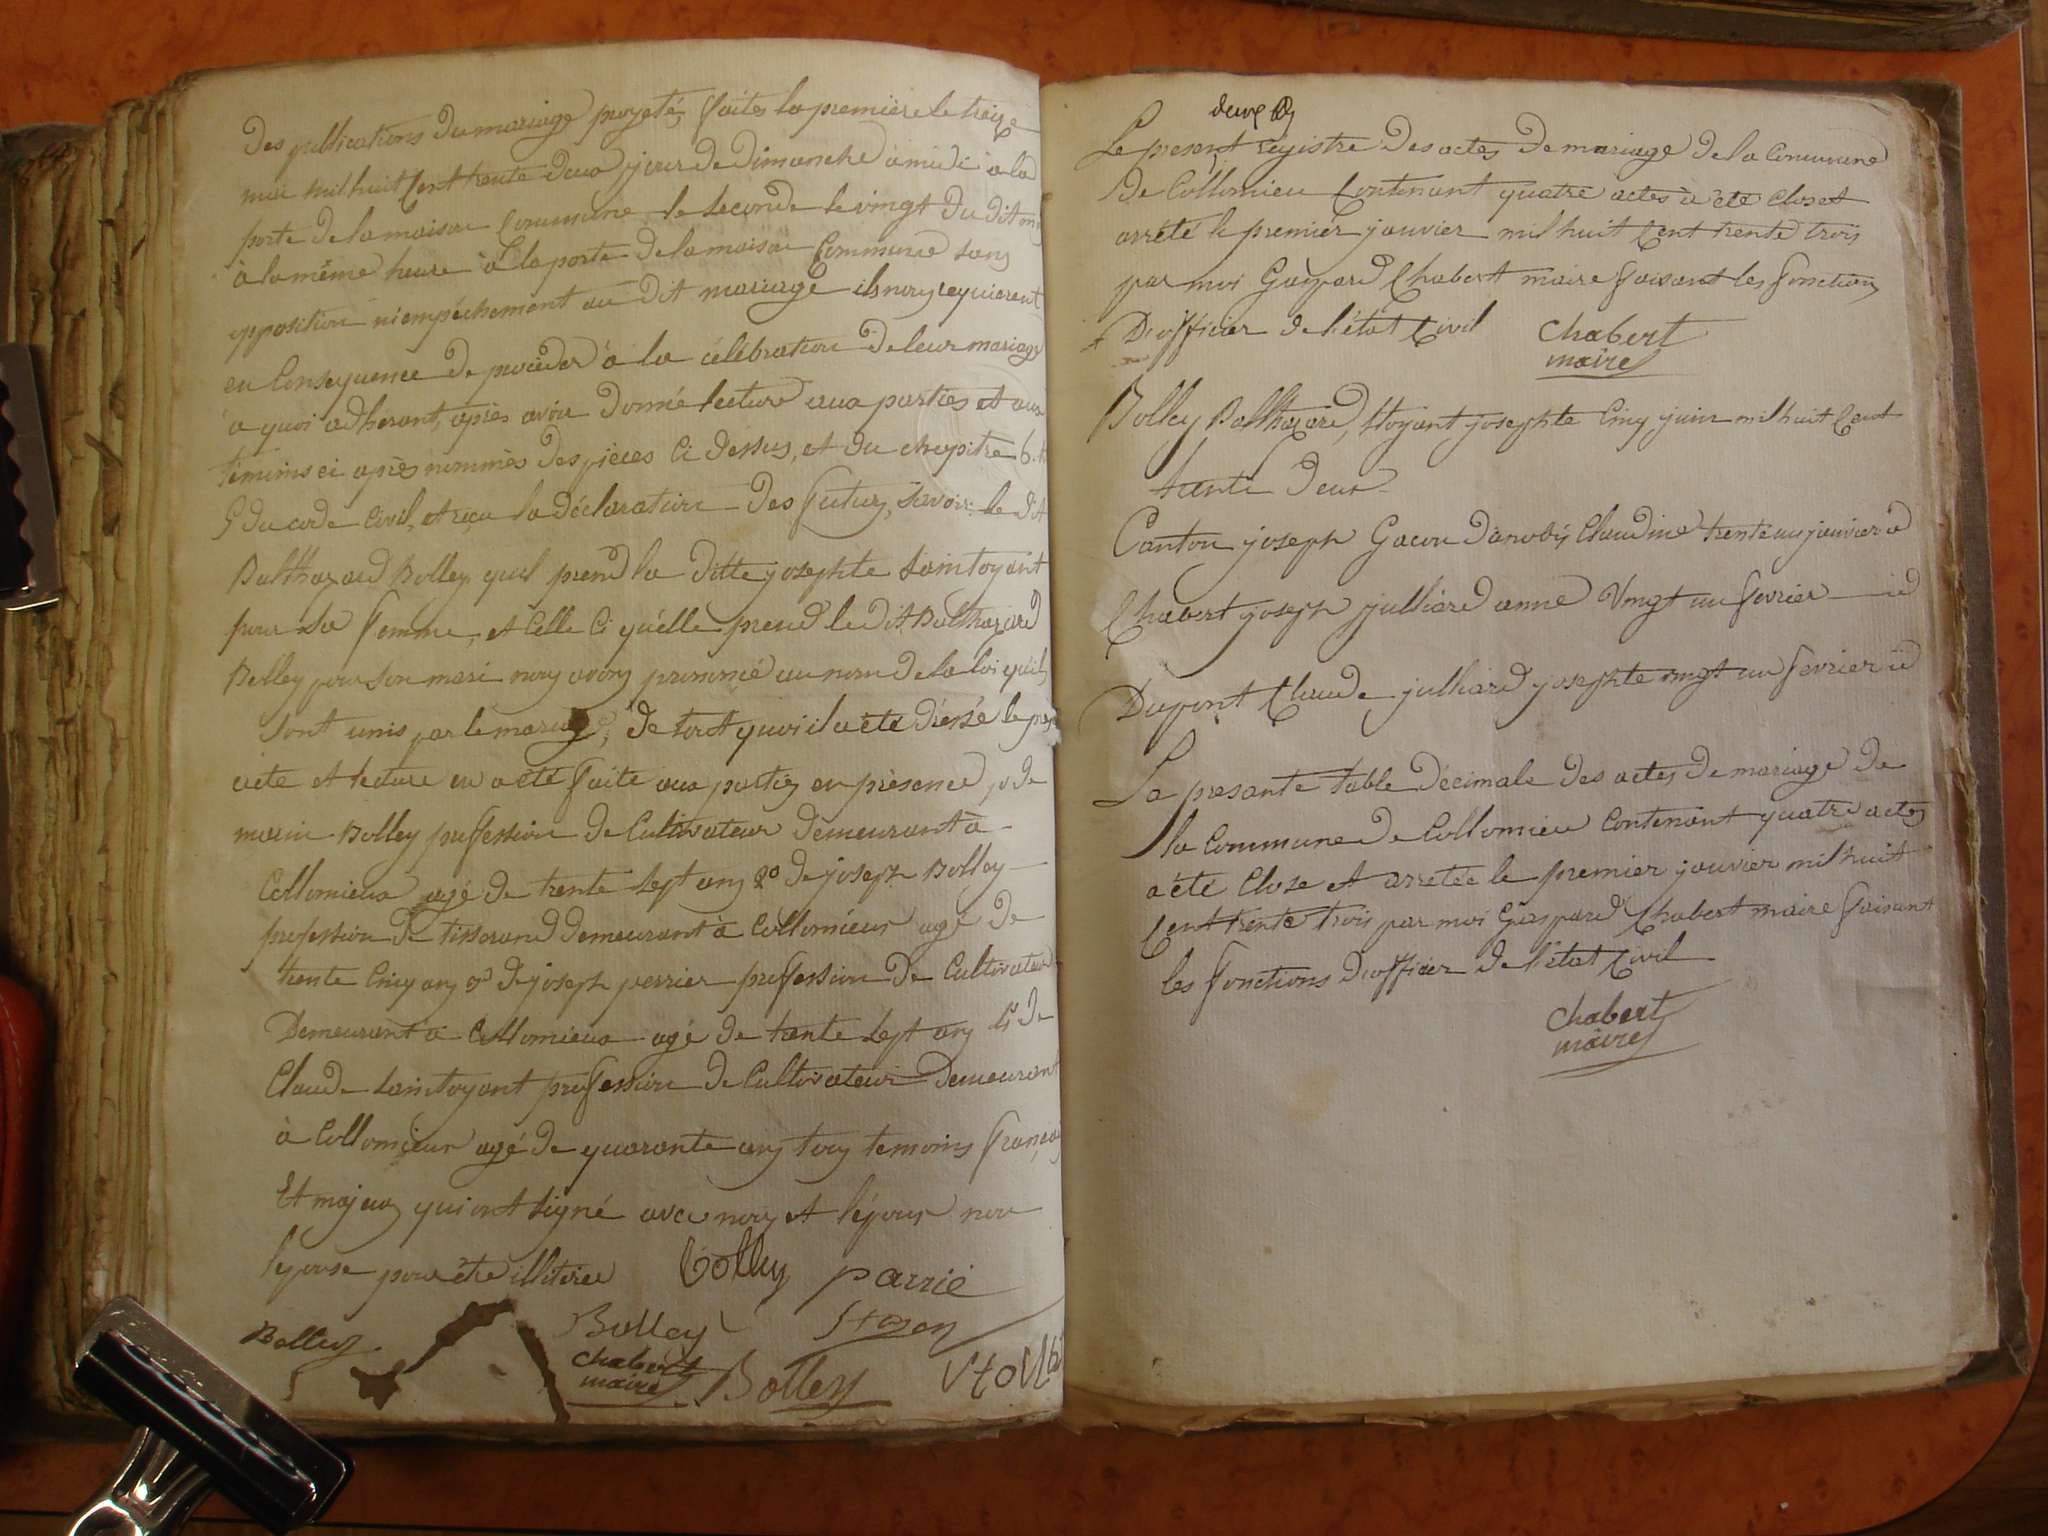 Des publications Du mariage projeté, faites la première le treize
mai mil huit Cent trente Deux jour de Dimanche à midi à la
porte de la maison Commune, le seconde le vingt Du dit
à la même heure à la porte de la maison Commune sans
opposition ni empéchement au dit mariage ils nous requierent
en Consequence De procéder à la célébration De leur mariage
à quoi adherant, après avoir Donné lecture aux parties et aux
témoins ci après nommés Des pièces Ci Dessus, et du chapitre 6
Du code Civil, et reçu la déclaration Des futurs, savoir le dit
Balthazard Bolley qu'il prend la ditte josephte Saintoyant
pour sa femme, et Celle Ci qu'elle prend le dit Balthazard
Bolley pour son mari nous avons prononcé au nom de la loi qu'ils
sont unis par le mariage, De tout quoi il a été Dressé le
acte et lecture en a été faite aux parties en présence 1o de
Bolley profession De Cultivateur demeurant à
Collomieux agé de trente sept ans 2o de joseph Bolley
profession De tisserand demeurant à Collomieux agé De
trente Cinq ans 3o De joseph perrier profession De Cultivateur
Demeurant à Collomieux agé De trente sept ans 4o De
Claude Saintoyant profession De Cultivateur Demeurant
à Collomieux agé De quarante ans tous temoins français
Et majeurs qui ont signé avec nous et l'époux non
l'epouse pour être illitérée Bolley parrié
Bolley Bolley
chabert
maire Bolley
deux
Le present registre Des actes De mariage De la Commune
De Collomieu Contenant quatre actes à été Clos et
arrété le premier janvier mil huit Cent trente trois
par moi Gaspard Chabert maire faisant les fonctions
D'officier de l'état Civil chabert
maire
Bolley Balthazard, Stoyant josephte Cinq juin mil huit Cent
trente Deux
Canton joseph Claudine trente un janvier id
Chabert joseph julliard anne Vingt un fevrier id
Dupont Claude julliard josephte vingt un fevrier id
La presante table Décimale Des actes De mariage De
la Commune De Collomieu Contenant quatre actes
a été Close et arretée le premier janvier mil huit
Cent trente trois par moi Gaspard Chabert maire faisant
les fonctions D'officier De l'état Civil
chabert
maire